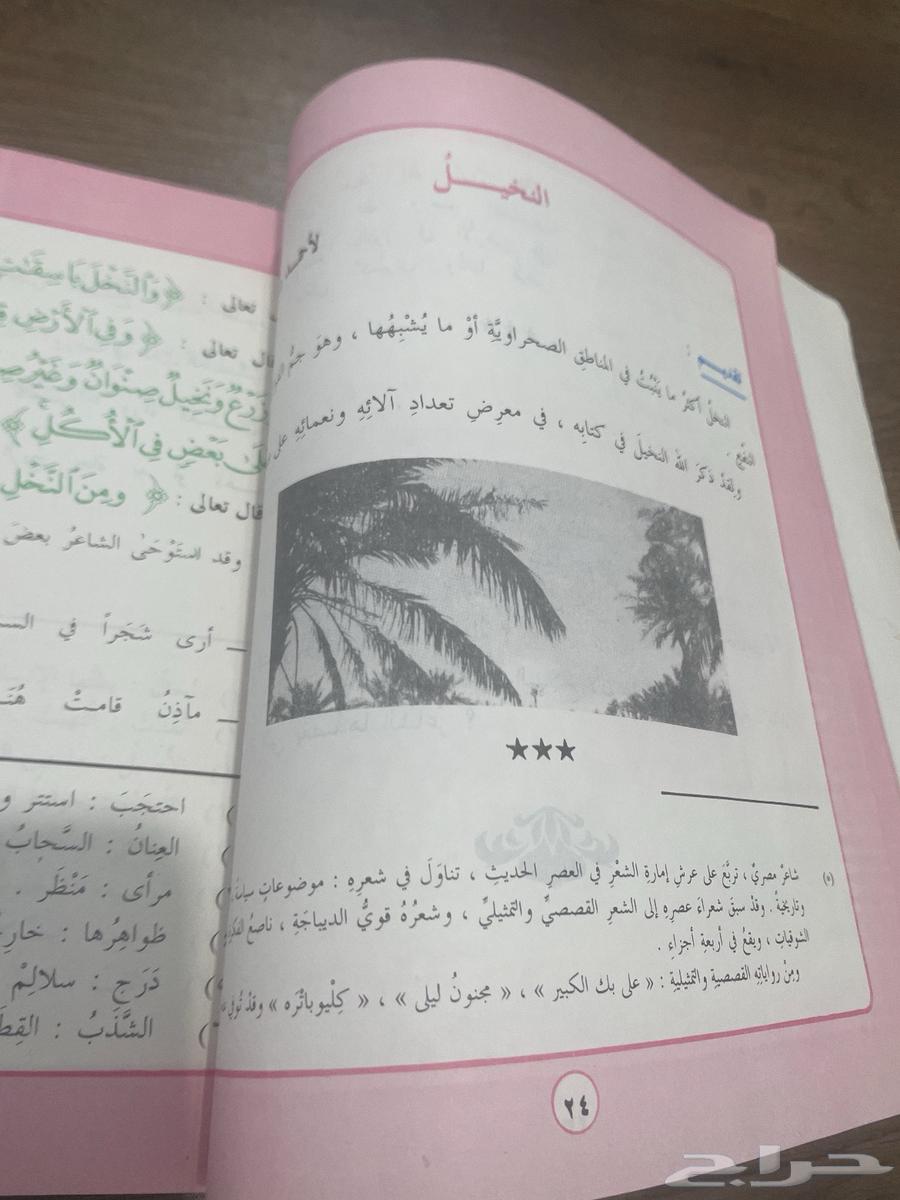 النخيــــلُ
لأحمد
تقديم :
النخلُ أكثرُ ما يَنْبُتُ في المناطقِ الصحراويَّةِ أوْ ما يُشْبِهُها ، وهوَ جمُّ
النفْعِ .
ولقدْ ذكَرَ اللهُ النخيلَ في كتابِه ، في معرِضِ تعدادِ آلائِهِ ونعمائِهِ على
★★★
(*) شاعرٌ مصريٌ ، تربَّعَ على عرشِ إمارةِ الشعْرِ في العصرِ الحديثِ ، تناوَلَ في شعرِهِ : موضوعاتٍ
وتاريخيةً . وقدْ سبقَ شعراءَ عصرِهِ إلى الشعرِ القصصيِّ والتمثيليِّ ، وشعرُهُ قويُّ الديباجَةِ ، ناصعُ
الشوقيات ، ويقعُ في أربعةِ أجزاءٍ .
ومِنْ رواياتِهِ القصصيةِ والتمثيليةِ : « على بك الكبير » ، « مجنونُ ليلى » ، « كِليوباتْرَه » وقدْ تُوفي
٢٤
تعالى : ﴿ وَٱلنَّخْلَ بَاسِقَٰتٍ
قال تعالى : ﴿ وَفِى ٱلْأَرْضِ
زَرْعٌ وَنَخِيلٌ صِنْوَانٌ وَغَيْرُ
بَعْضٍ فِى ٱلْأُكُلِ ﴾
قال تعالى : ﴿ ومِنَ ٱلنَّخْلِ
وقد استَوْحَىٰ الشاعرُ بعضَ
ــ أرى شَجَراً في
ــ مآذِنُ قامتْ
احتجَبَ : استتر و
العِنانُ : السَّحابُ
مرأى : مَنْظَر .
ظواهِرُها :
دَرَجٍ : سلالِمْ
الشَّذَبُ :
حراج